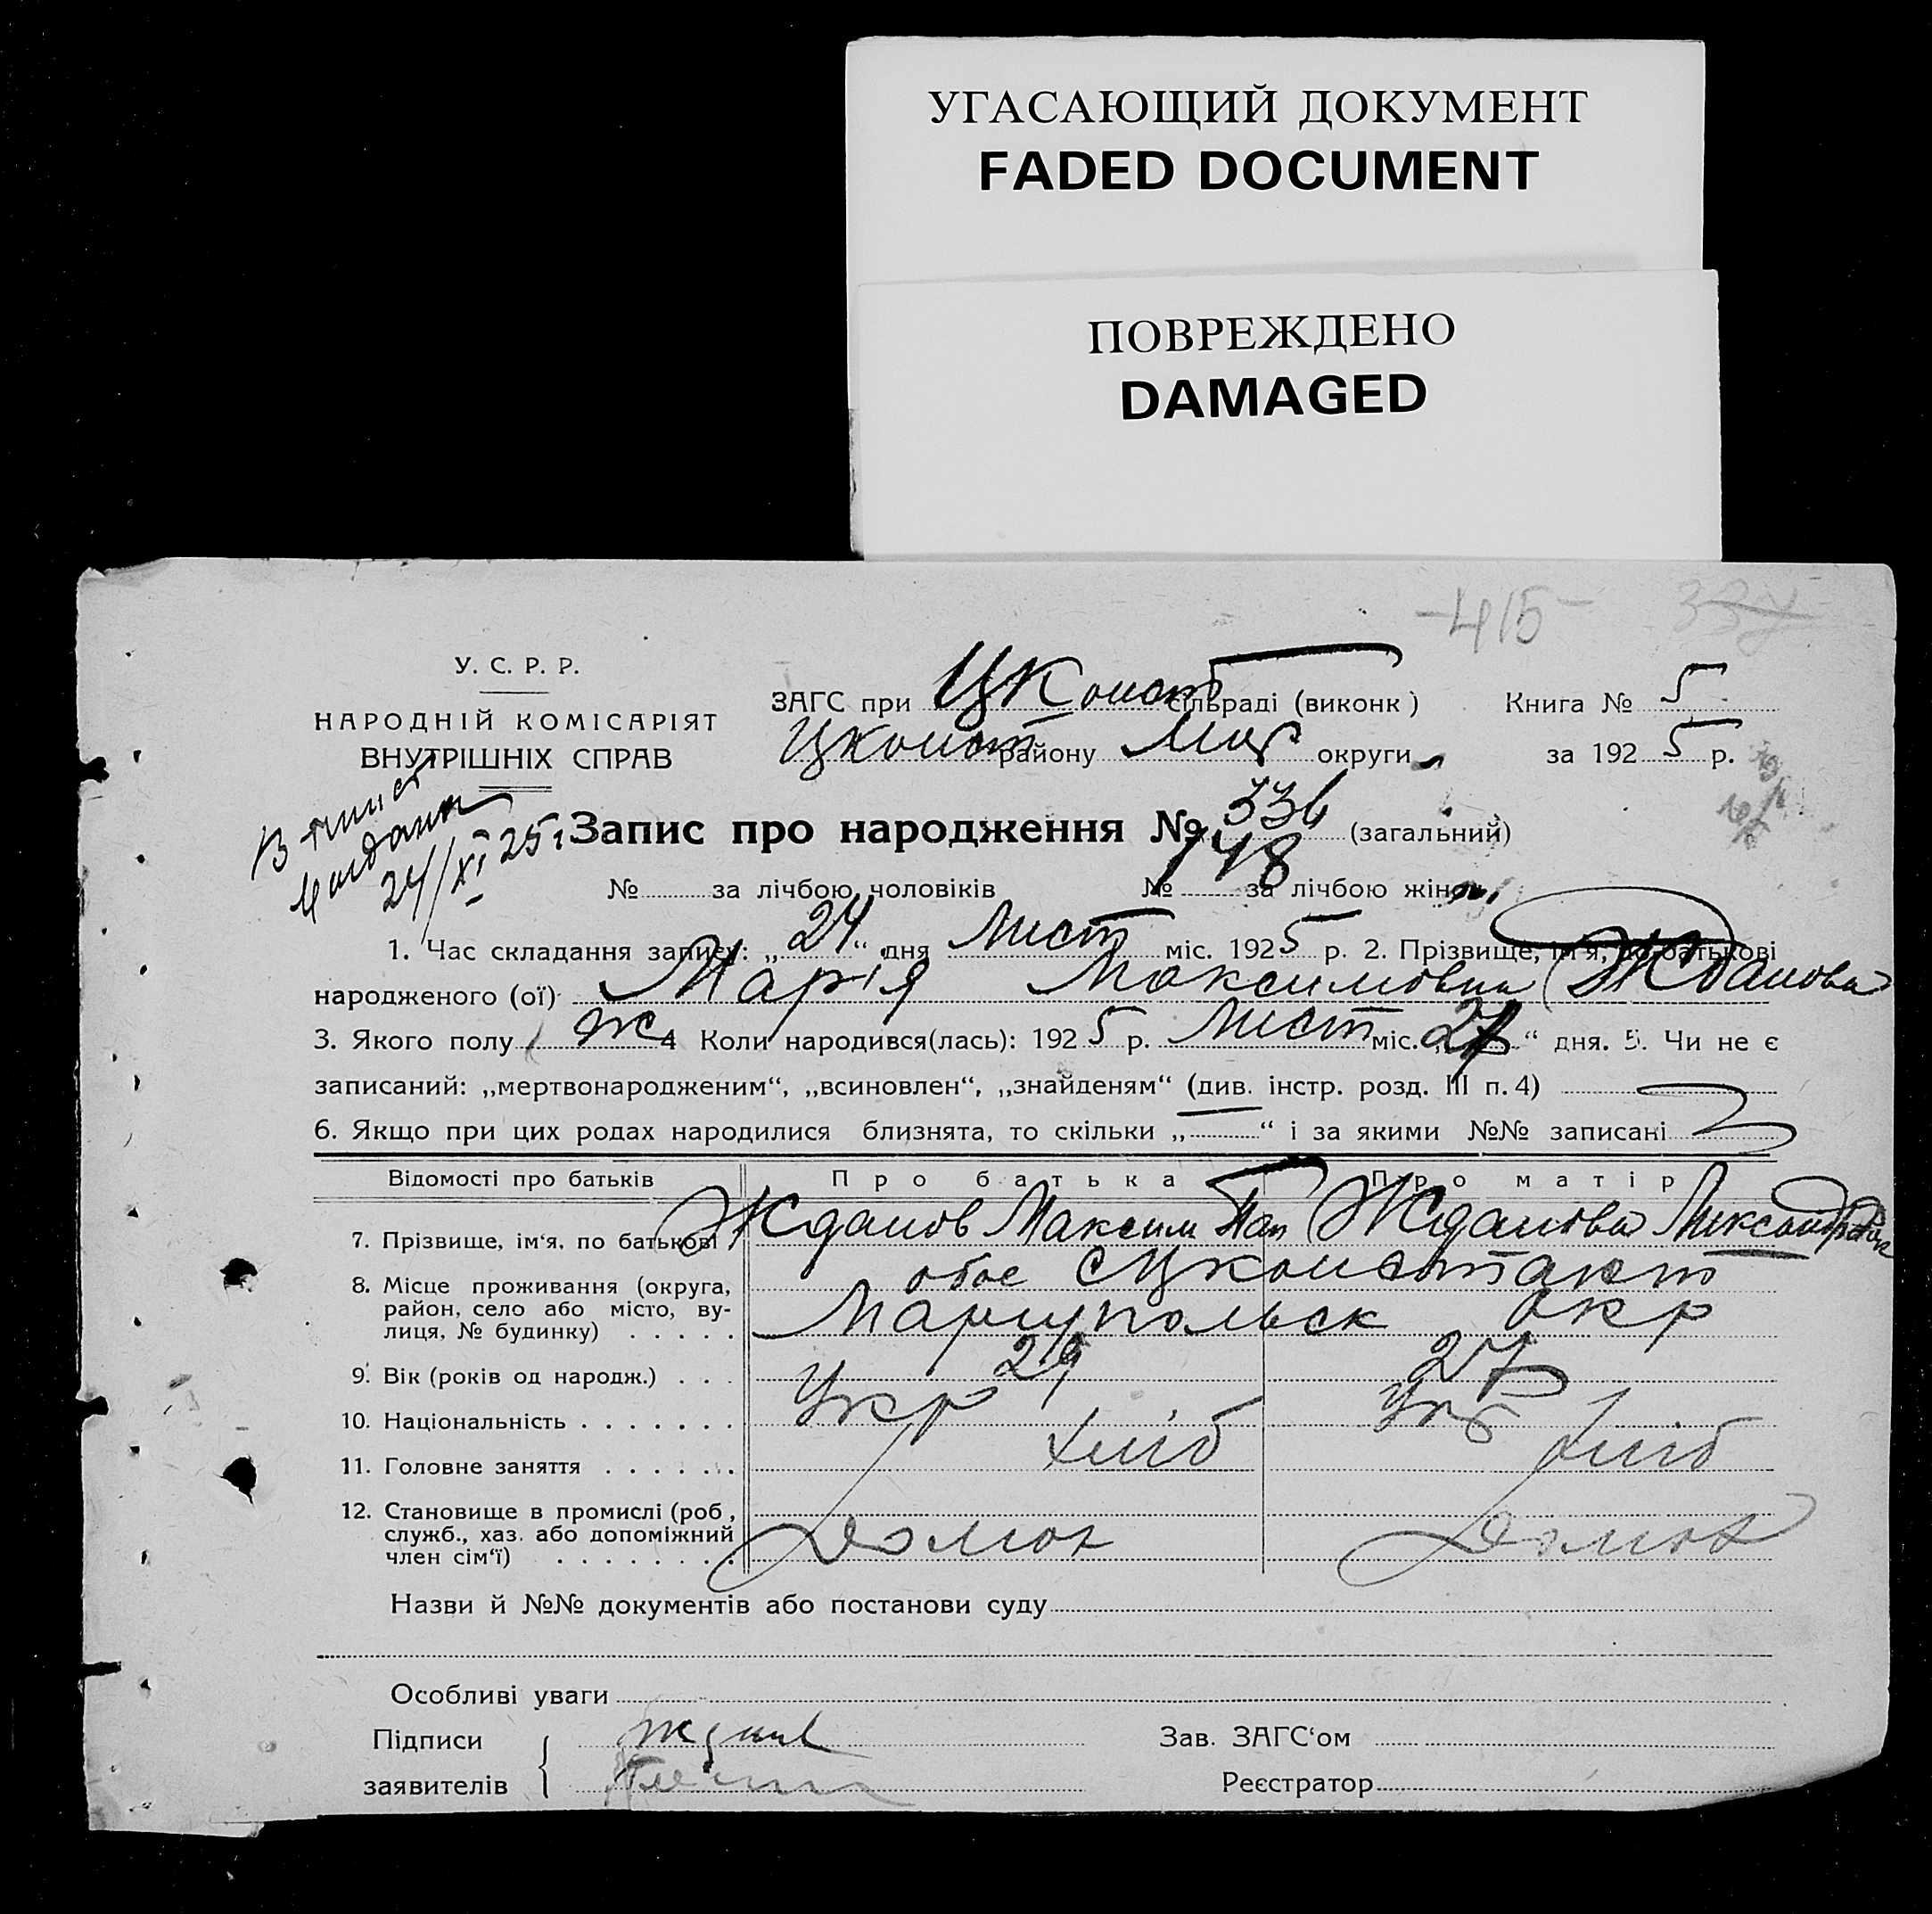 УГАСАЮЩИЙ ДОКУМЕНТ
FADED DOCUMENT
ПОВРЕЖДЕНО
DAMAGED
-415-
У. С. Р. Р.
НАРОДНІЙ КОМІСАРІЯТ
ВНУТРІШНІХ СПРАВ
ЗАГС при ЦКонст сільраді (виконк) Книга № 5
Цконст району Мар округи за 1925 р.
24/XI 25
Запис про народження № 336 (загальний)
№ за лічбою чоловіків № 148 за лічбою жінок
1. Час складання запису: „24“ дня Лист міс. 1925 р. 2. Прізвище, ім'я, по батькові
народженого (ої) Марія Максимовна Жданова
3. Якого полу ж 4 Коли народився(лась): 1925 р. Лист міс. „ “ дня. 5. Чи не є
записаний: „мертвонародженим“, „всиновлен“, „знайденям“ (див. інстр. розд. III п. 4)
6. Якщо при цих родах народилися близнята, то скільки „—“ і за якими №№ записані
Відомості про батьків Про батька Про матір
7. Прізвище, ім'я, по батькові Жданов Максим Пап Жданова
8. Місце проживання (округа, район, село або місто, вулиця, № будинку) обое с Цконстант
Мариупольск окр
9. Вік (років од народж.) 29 27
10. Національність Укр Укр
11. Головне заняття хліб хліб
12. Становище в промислі (роб, служб., хаз. або допоміжний член сім'ї) домох домох
Назви й №№ документів або постанови суду
Особливі уваги
Підписи
заявителів
Зав. ЗАГС'ом
Реєстратор